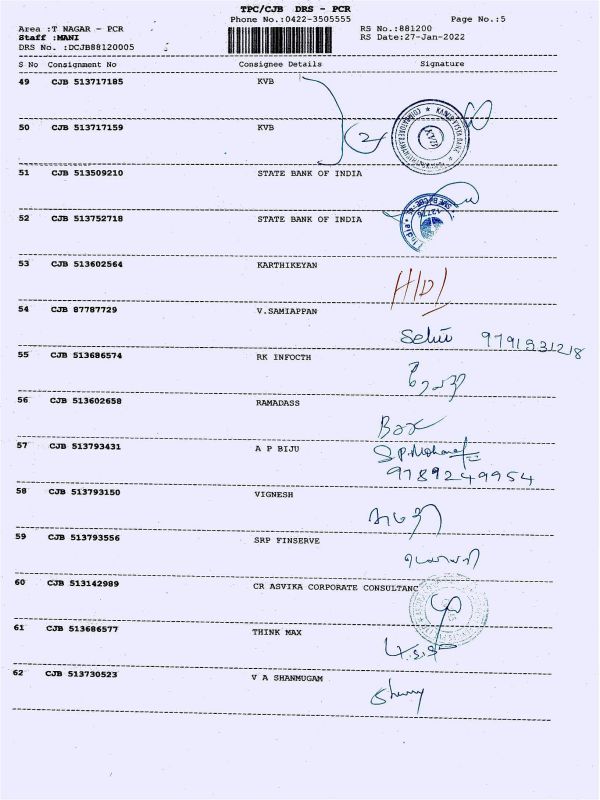 TPC/CJB DRS - PCR
Phone No.:0422-3505555 Page No.:5
Area :T NAGAR - PCR RS No.:881200
Staff :MANI RS Date:27-Jan-2022
DRS No. :DCJB88120005
S No Consignment No Consignee Details Signature
49 CJB 513717185 KVB
50 CJB 513717159 KVB
2
51 CJB 513509210 STATE BANK OF INDIA
52 CJB 513752718 STATE BANK OF INDIA
53 CJB 513602564 KARTHIKEYAN
54 CJB 87787729 V.SAMIAPPAN
9791931218
55 CJB 513686574 RK INFOCTH
56 CJB 513602658 RAMADASS
Box
57 CJB 513793431 A P BIJU
9789249954
58 CJB 513793150 VIGNESH
59 CJB 513793556 SRP FINSERVE
60 CJB 513142989 CR ASVIKA CORPORATE CONSULTANC
61 CJB 513686577 THINK MAX
62 CJB 513730523 V A SHANMUGAM